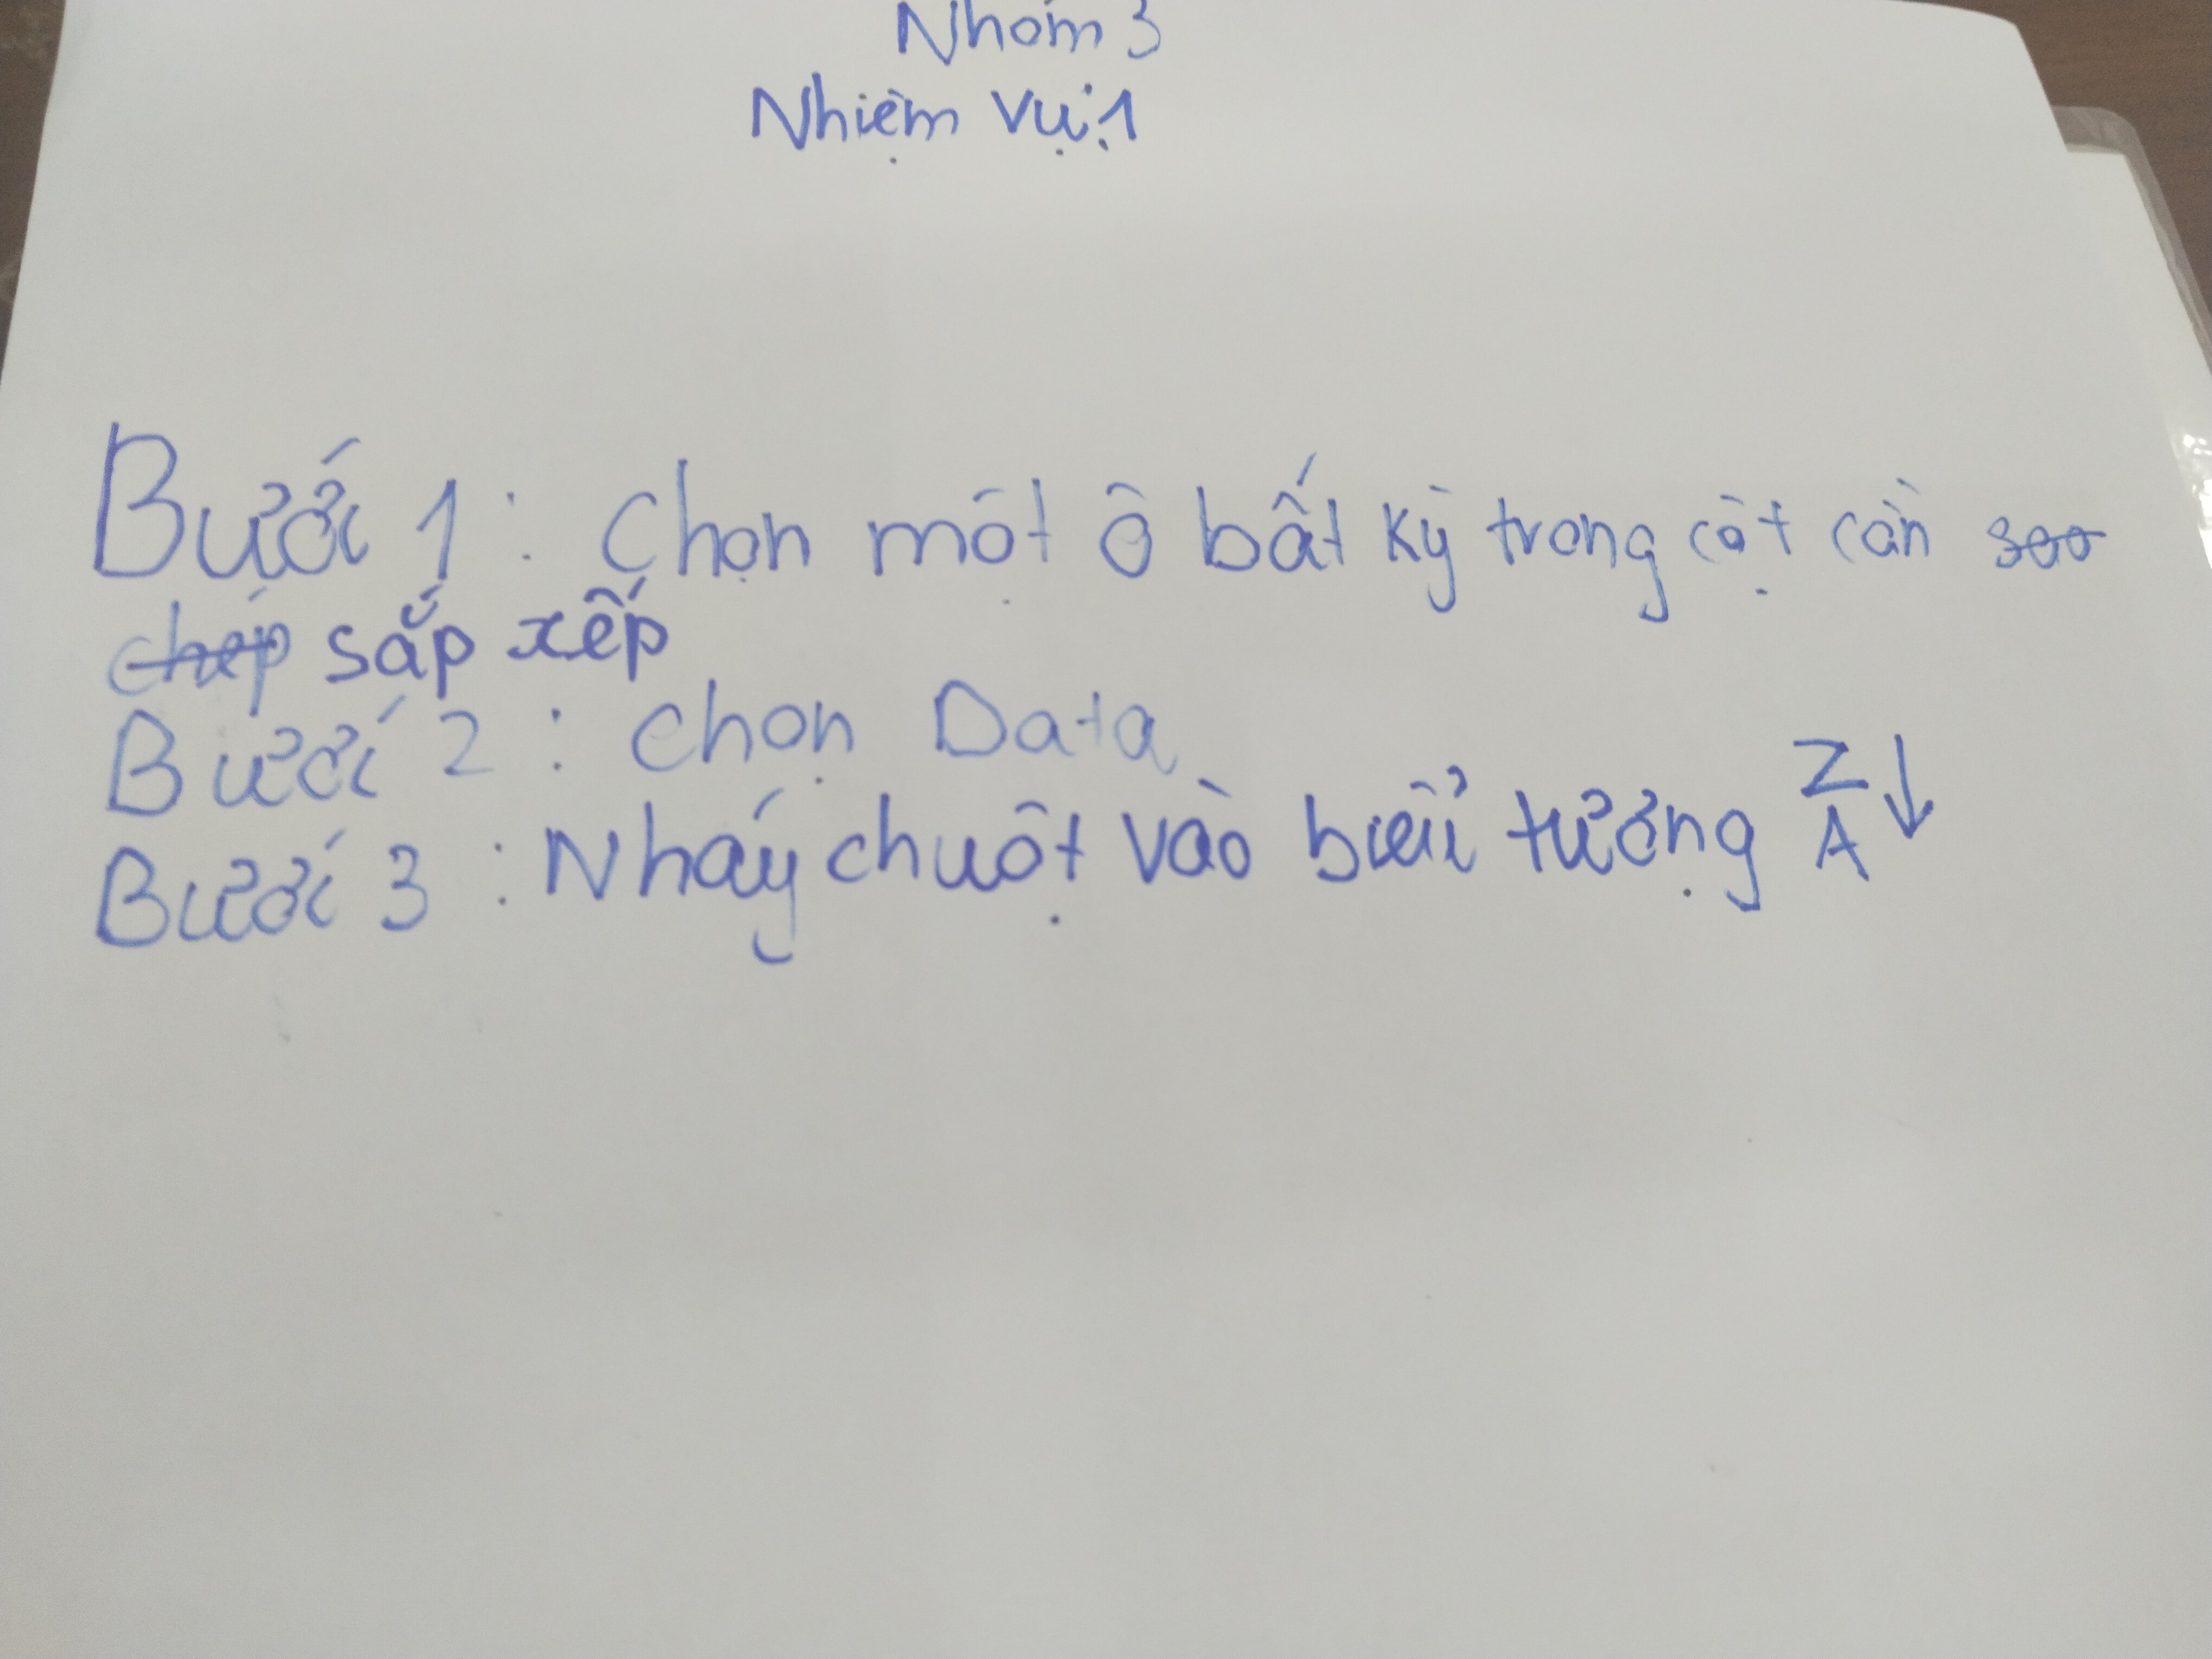 Nhóm 3
Nhiệm vụ:1
Bước 1: Chọn một ô bất kỳ trong cột cần sao
chép sắp xếp
Bước 2: chọn Data
Bước 3: Nháy chuột vào biểu tượng Z↓
A